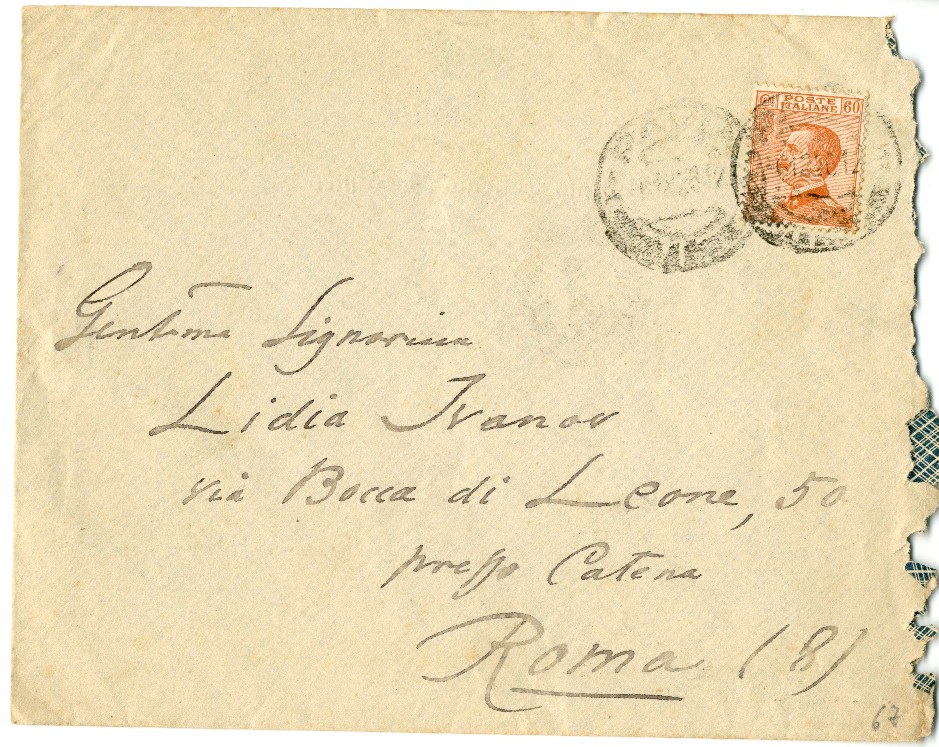 60 POSTE ITALIANE 60
Gent.ma Signorina
Lidia Ivanov
via Bocca di Leone, 50
presso Catena
Roma (8)
67